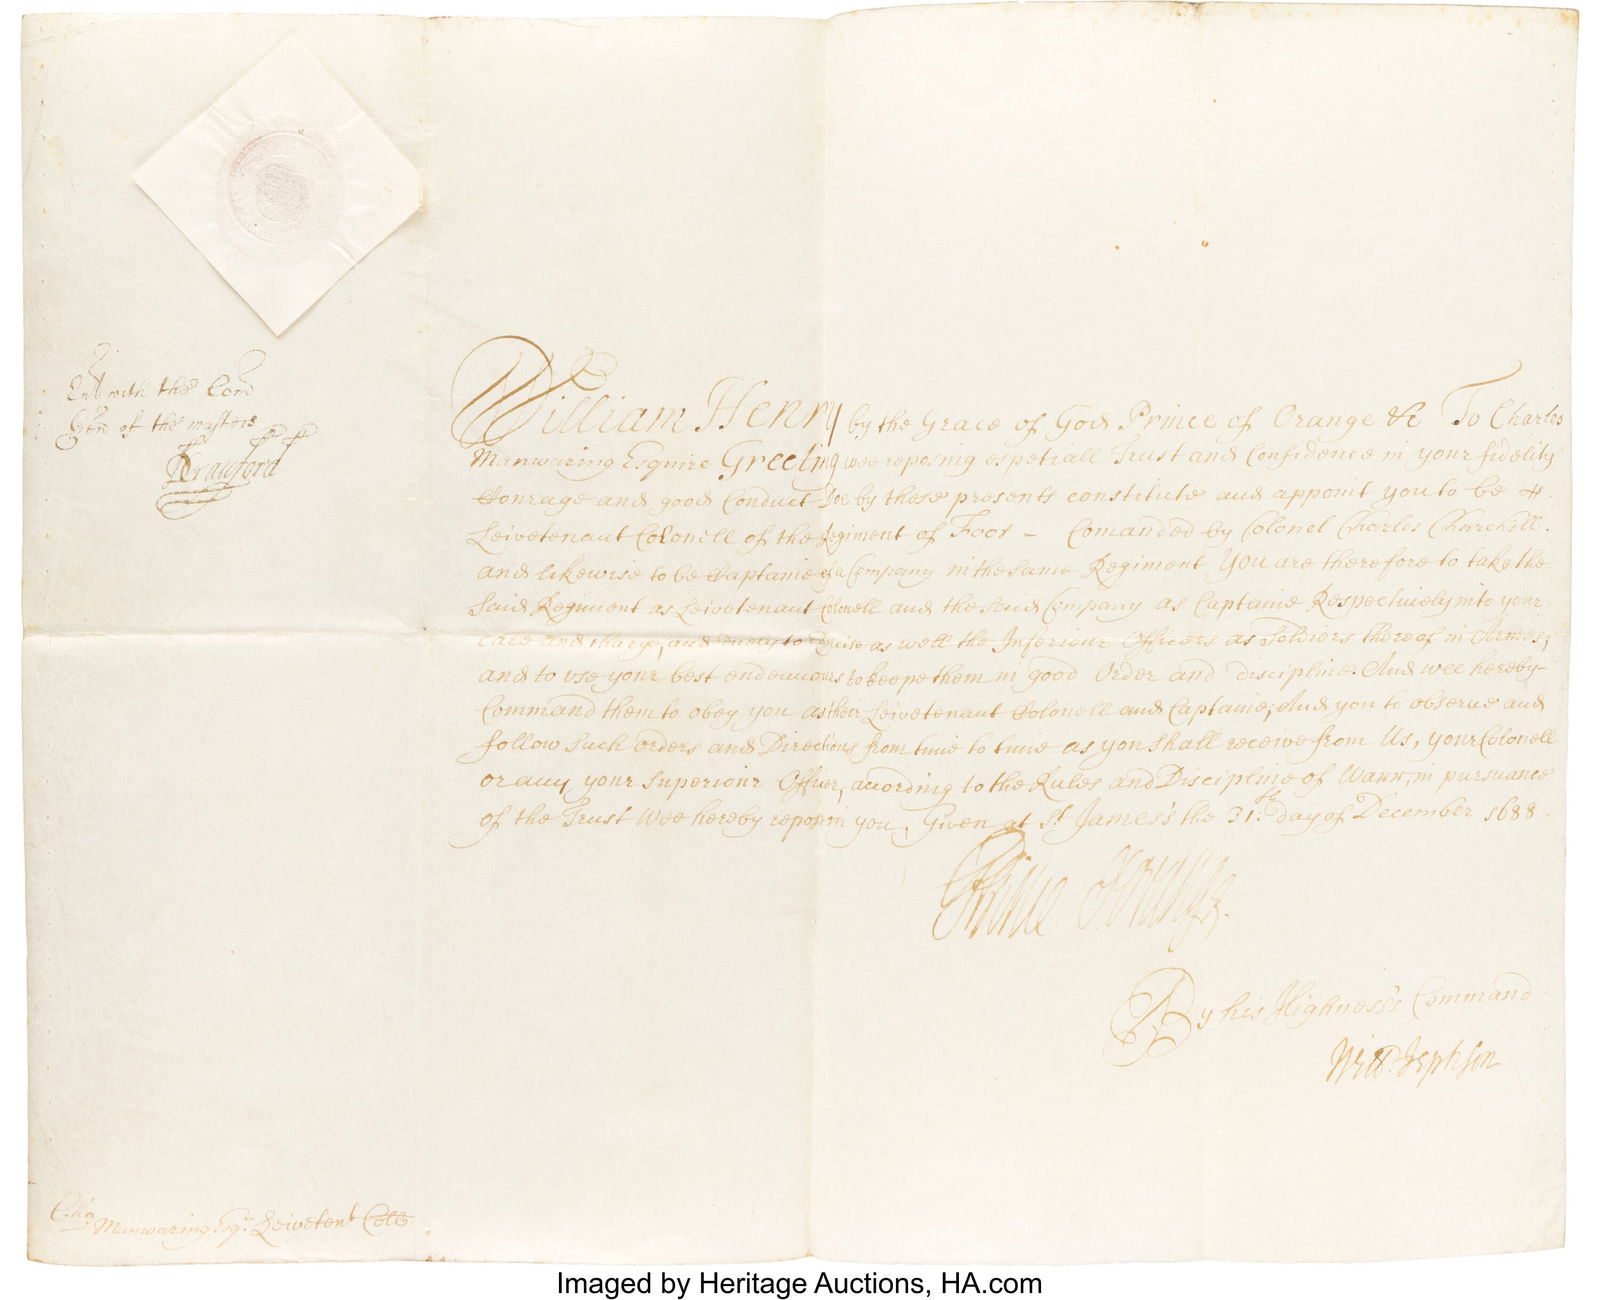 Ent with the Com
Gen of the musters
DCrauford
William Henry by the Grace of God Prince of Orange &c To Charles
Manwaring Esquire Greeting wee reposing espetiall Trust and Confidence in your fidelity
Courage and good Conduct Doe by these presents constitute and appoint you to be
Leivetenaut Colonell of the Regiment of Foot - Comanded by Colonel Charles Churchill.
and likewise to be Captaine of a Company in the same Regiment You are therefore to take the
said Regiment as Leivetenaut Colonell and the said Company as Captaine Respectively into your
care and charge, and duely to Exercise as well the Inferiour Officers as Soldiers thereof in Armes;
and to use your best endeavours to keepe them in good Order and discipline. And wee hereby
Command them to obey you as their Leivetenaut Colonell and Captaine; And you to observe and
follow such orders and Directions from time to time as you shall receive from Us, your Colonell
or any your superiour Officer, according to the Rules and Discipline of Warr, in pursuance
of the Trust Wee hereby repose in you. Given at St. James's the 31th. day of December 1688
Prince d'Orange.
By his Highness's Command
Will. Jephson
Cha Manwaring Esqr. Leivetent. Coll.
Imaged by Heritage Auctions, HA.com